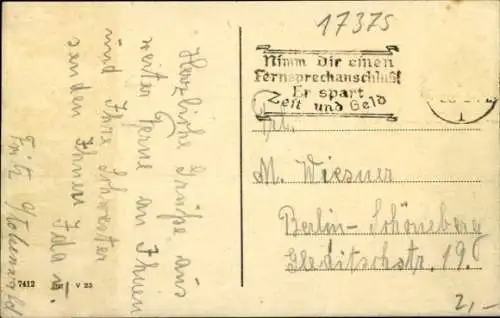 Herzliche Grüße aus
weiter Ferne an Ihnen
und Ihre Schwester
senden Ihnen Ida u.
Fritz
7412
V 23
17375
Nimm Dir einen
Fernsprechanschluß!
Er spart
Zeit und Geld
Frl.
M. Wiesner
Berlin-Schöneberg
Gleditschstr. 19.
2,-